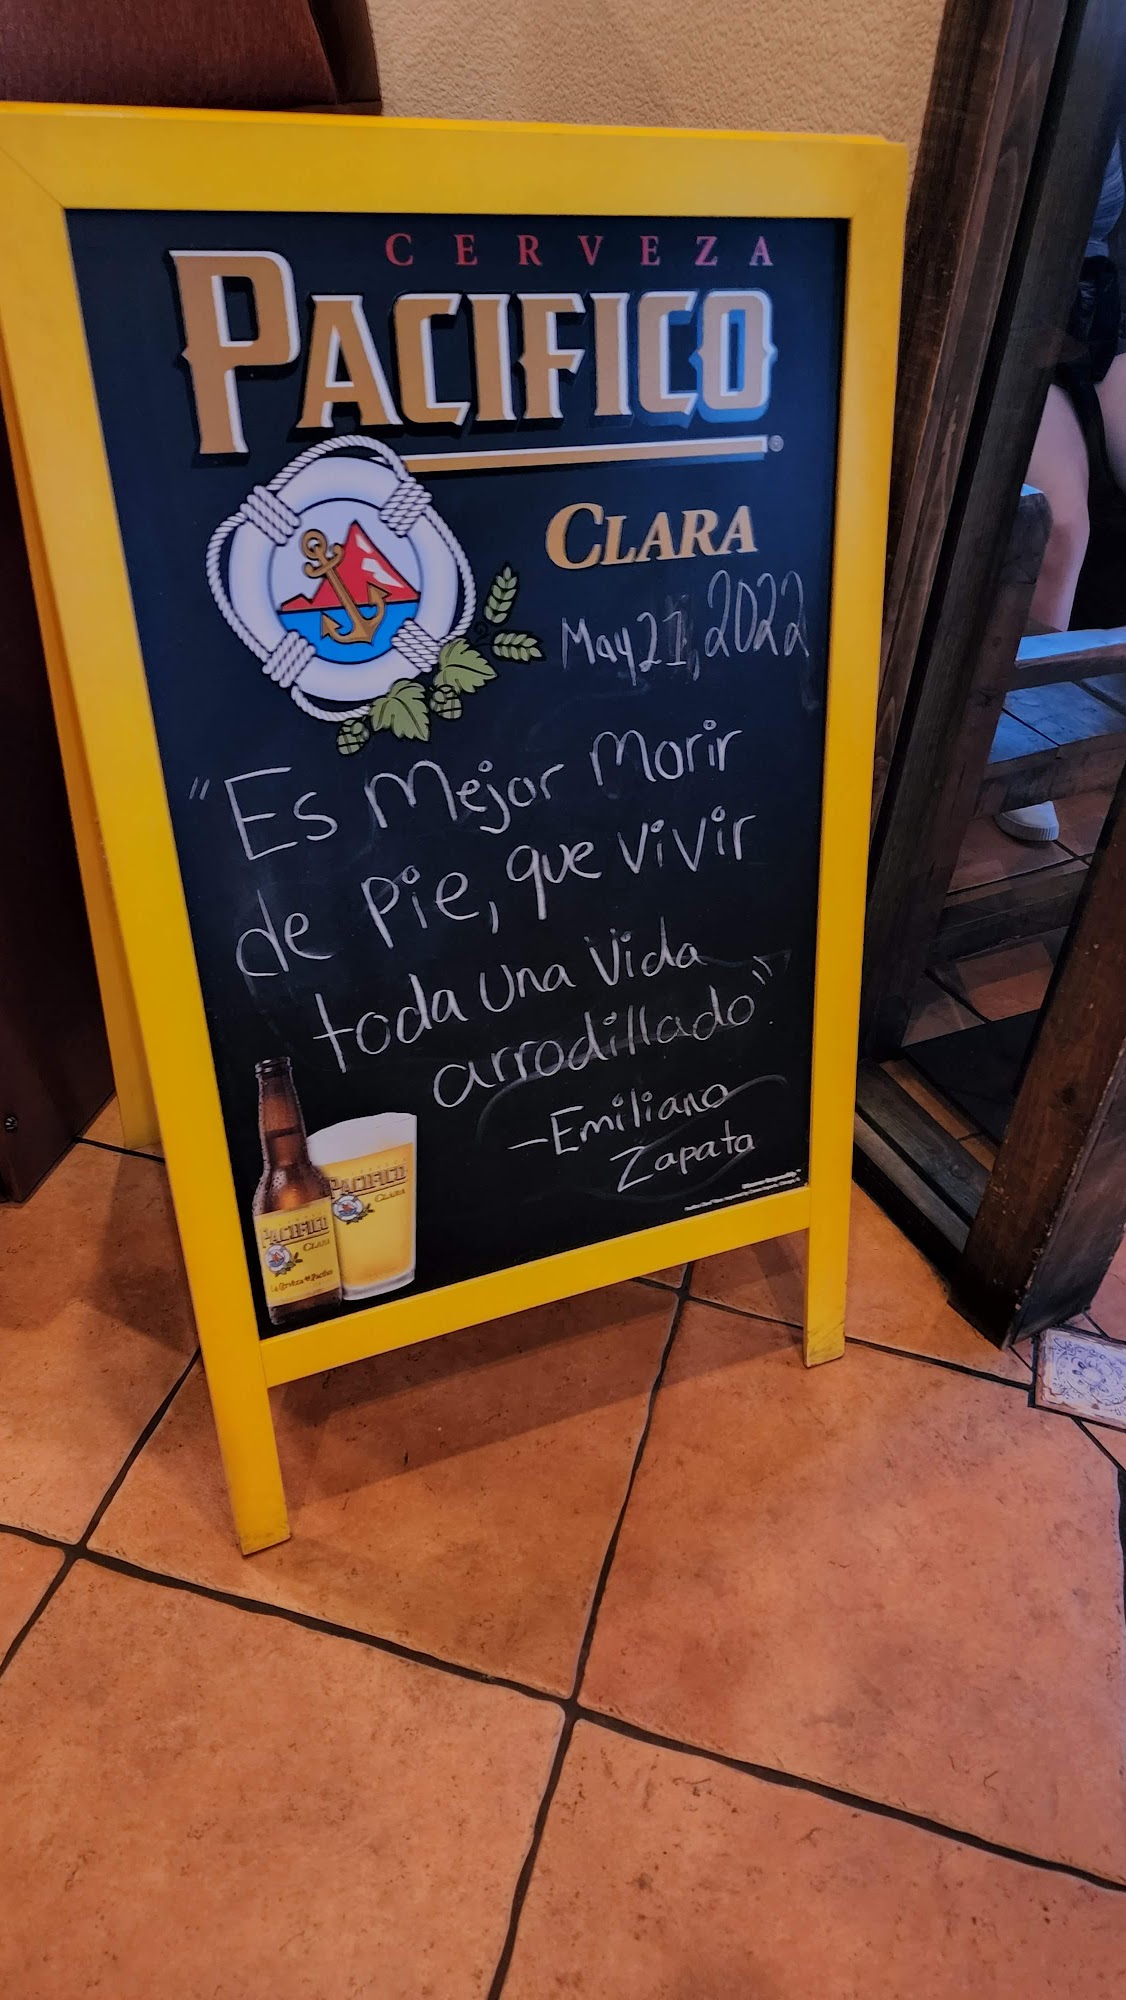 CERVEZA
PACIFICO
CLARA
May 21, 2022
"Es Mejor Morir
de Pie, que vivir
toda una vida
arrodillado".
-Emiliano
Zapata
PACIFICO
CLARA
PACIFICO
CLARA